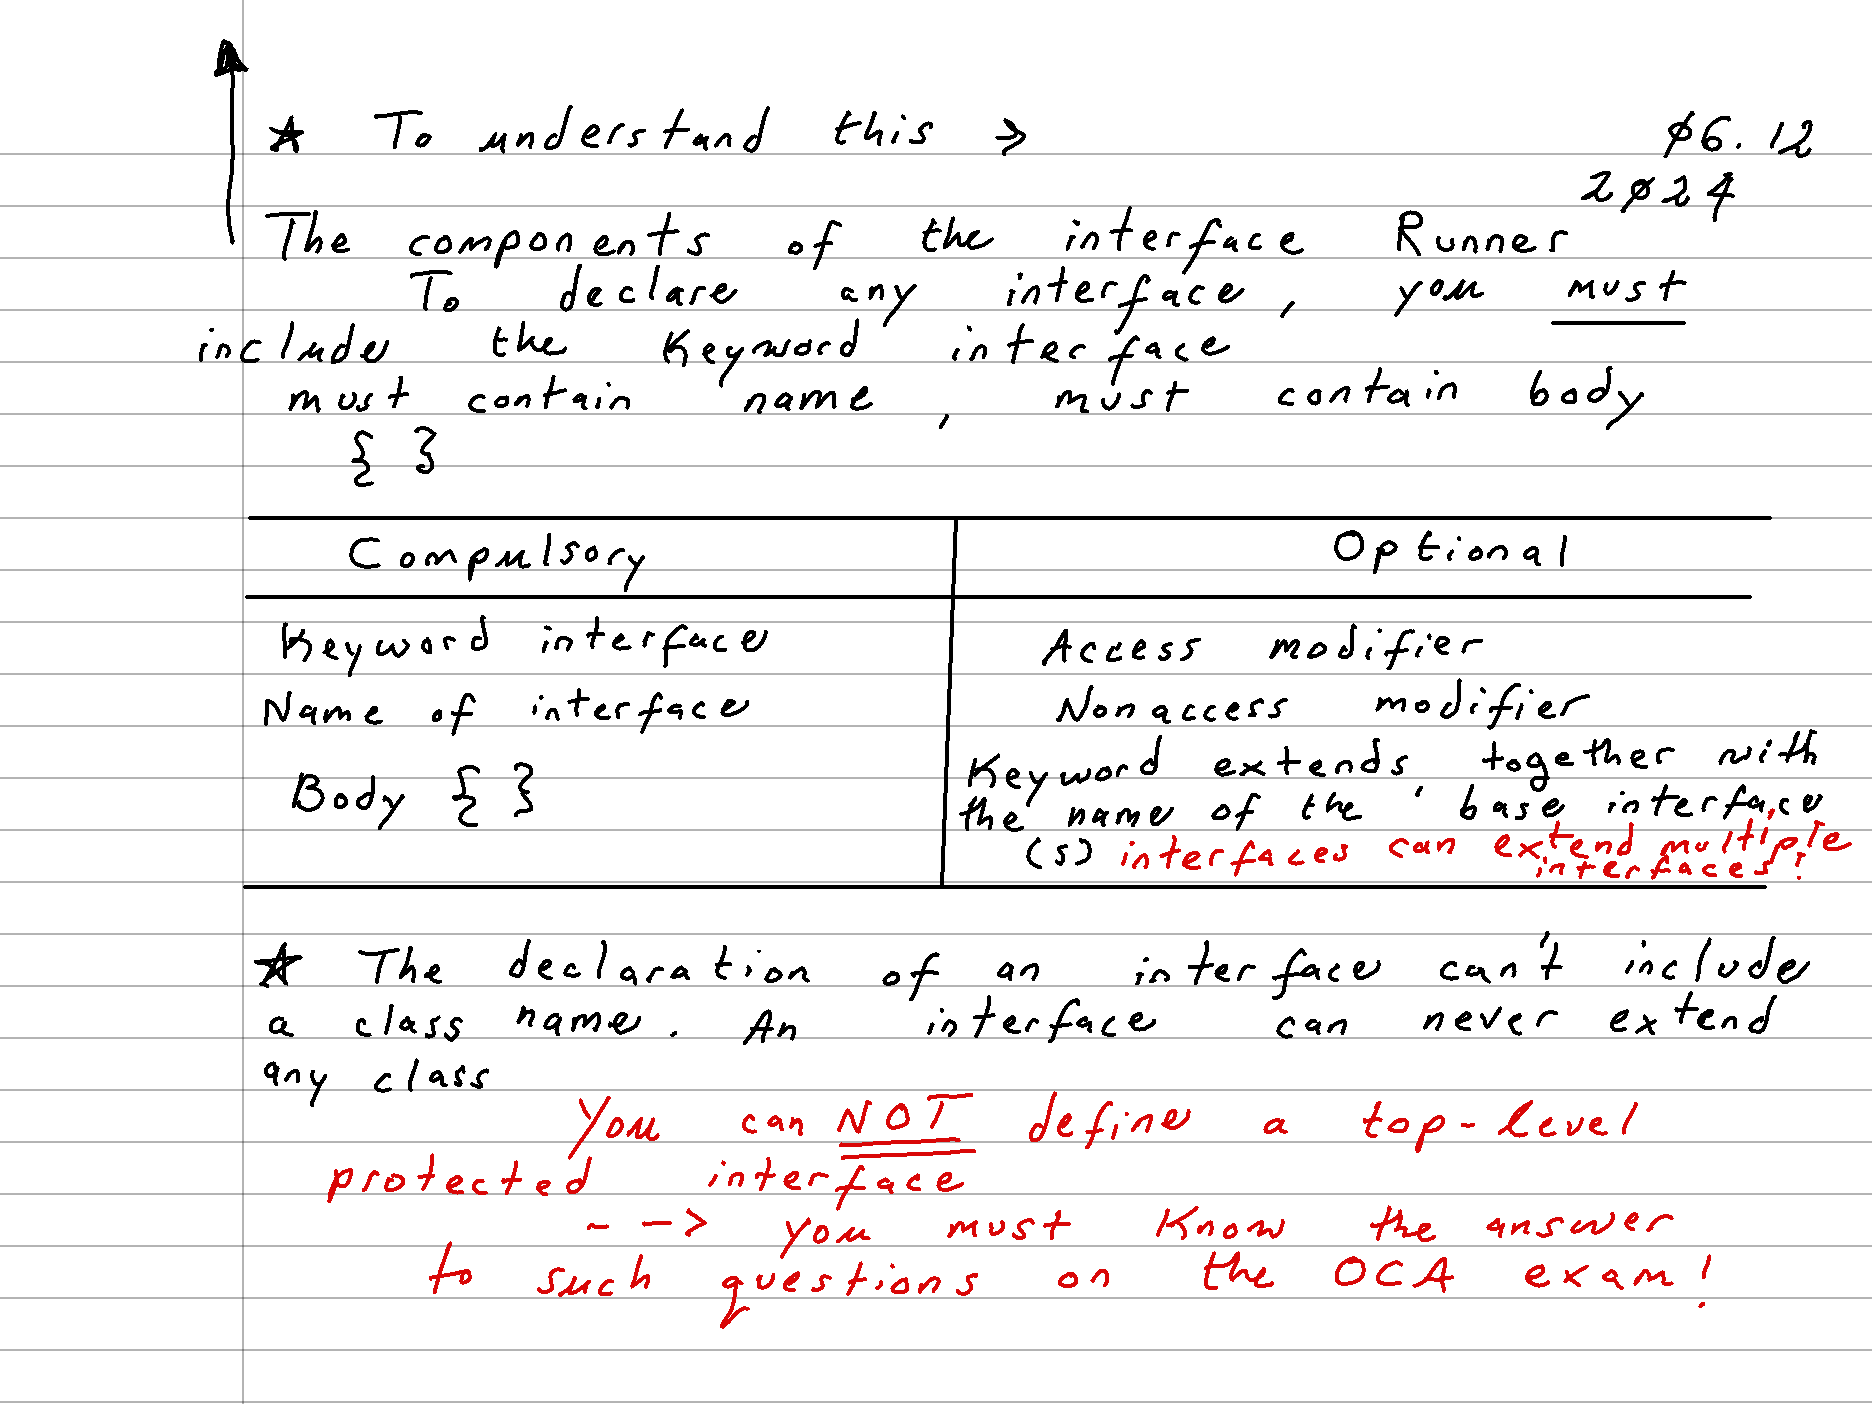 ★ To understand this →
06.12
2024
The components of the interface Runner
To declare any interface, you must
include the Keyword interface
must contain name, must contain body
{ }
Compulsory Optional
Keyword interface Access modifier
Name of interface Nonaccess modifier
Body { } Keyword extends, together with
the name of the base interface
(s) interfaces can extend multiple
interfaces!
★ The declaration of an interface can't include
a class name. An interface can never extend
any class
You can NOT define a top-level
protected interface
--> you must Know the answer
to such questions on the OCA exam!